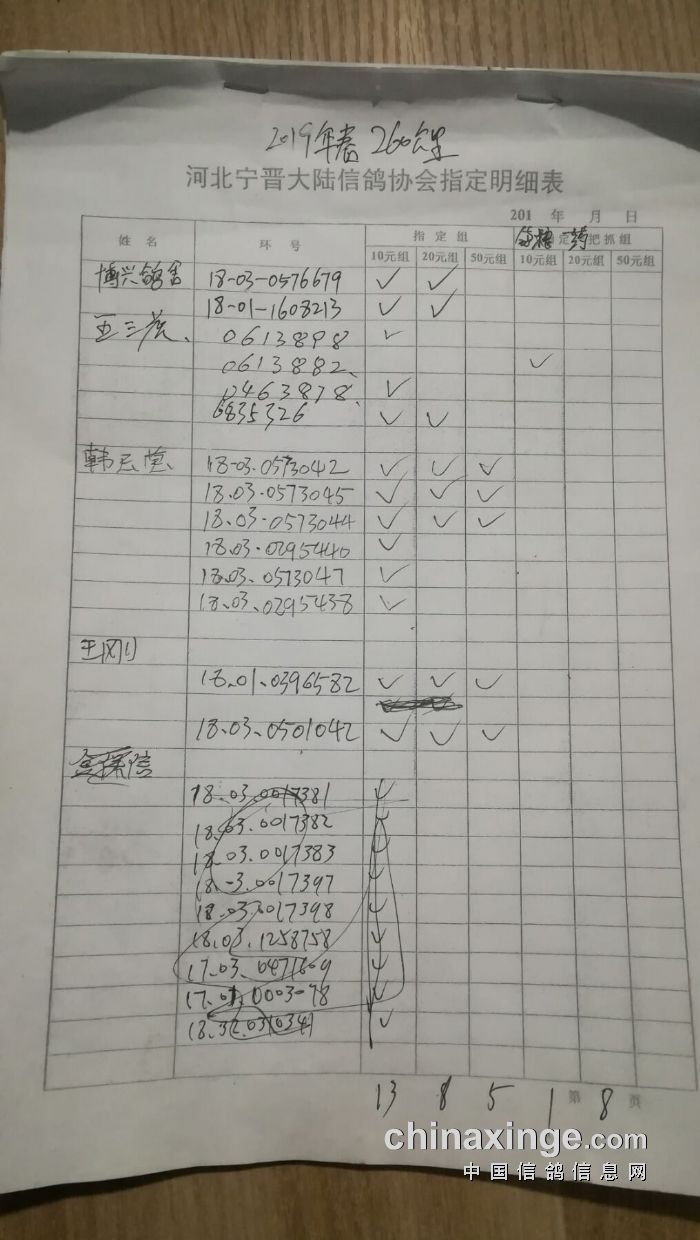 2019年春 260公里
河北宁晋大陆信鸽协会指定明细表
201 年 月 日
姓 名 环 号 指 定 组 定 把 抓 组
10元组 20元组 50元组 10元组 20元组 50元组
博兴鸽舍 18-03-0576679 ✓ ✓
18-01-1608213 ✓ ✓
王三 0613898 ✓
0613882、 ✓
0463878、 ✓
6835326 ✓ ✓
韩 18-03.0573042 ✓ ✓ ✓
18.03.0573045 ✓ ✓ ✓
18.03.0573044 ✓ ✓ ✓
18.03.0295440 ✓
18.03.0573047 ✓
18.03.0295438 ✓
王刚
18.01.0396582 ✓ ✓ ✓
18.03.0501042 ✓ ✓ ✓
信
18.03.0017381 ✓
18.03.0017382 ✓
18.03.0017383 ✓
18.-3.0017397 ✓
18.03.0017398 ✓
18.03.1258758 ✓
17.03.0471609 ✓
17.01.0003-78 ✓
✓
13 8 5 1 第 8 页
chinaxinge.com
中国信鸽信息网